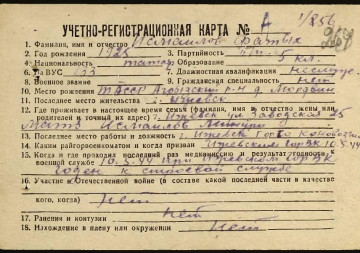 УЧЕТНО-РЕГИСТРАЦИОННАЯ КАРТА № 1/256
1. Фамилия, имя и отчество Исмаилов Фатых
2. Год рождения 1925 3. Партийность б/п
4. Национальность татар 5. Образование 5 кл.
6. ВУС 133 7. Должностная квалификация
8. Военное звание 9. Гражданская специальность нет
10. Место рождения ТАССР Агрызский р-н д.
11. Последнее место жительства г. Ижевск
12. Где проживает в настоящее время семья (фамилия, имя и отчество жены или
родителей и точный их адрес) г. Ижевск ул. Заводская 25
Исмаилов
13. Последнее место работы и должность г. Ижевск
14. Каким райгорвоенкоматом и когда призван Ижевским ГорВК 10.3.44
15. Когда и где проходил последний раз медкомиссию и результат годности к
военной службе 10.3.44 при Ижевском ГорВК
годен к строевой службе
16. Участие в Отечественной войне (в составе какой последней части в качестве
кого, когда) нет
17. Ранения и контузии нет
18. Нахождение в плену или окружении нет